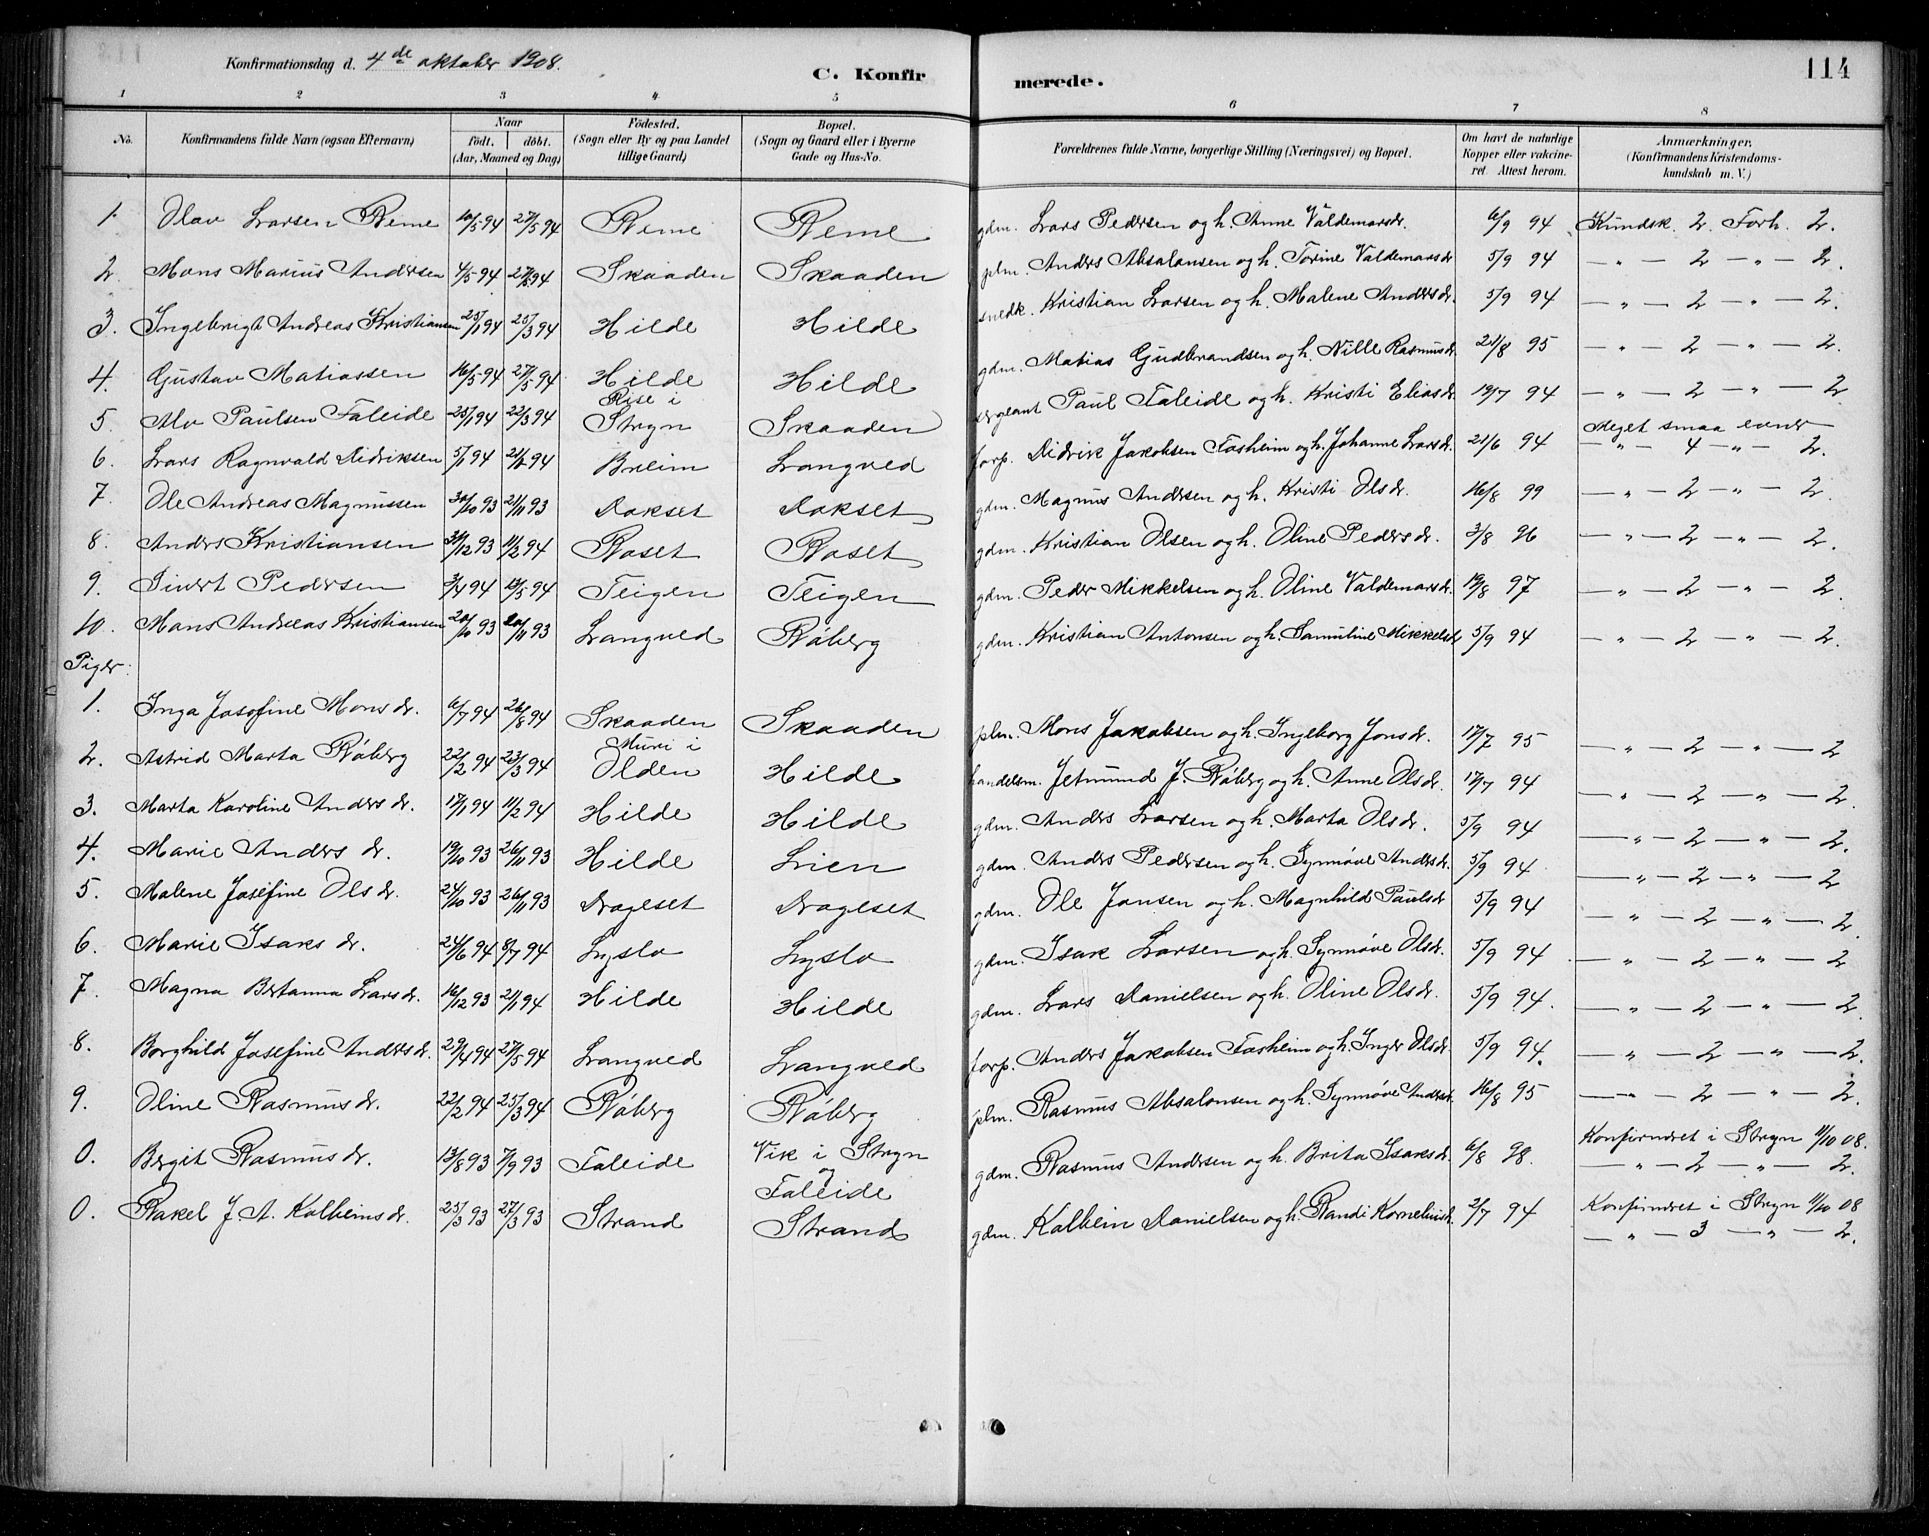 Konfirmationsdag d. 4de oktober 1908.
C. Konfirmerede.
114
1 2 3 4 5 6 7 8
No. Konfirmandens fulde Navn (ogsaa Efternavn) Naar födt. döbt. (Aar, Maaned og Dag) Födested. (Sogn eller By og paa Landet tillige Gaard) Bopæl. (Sogn og Gaard eller i Byerne Gade og Hus-No. Forældrenes fulde Navne, borgerlige Stilling (Næringsvei) og Bopæl. Om havt de naturlige Kopper eller vakcineret. Attest herom. Anmærkninger. (Konfirmandens Kristendomskundskab m. V.)
1. Olav Larsen Reme 10/5 94 27/5 94 Reme Reme gdm. Lars Pedersen og h. Anne Valdemarsdr. 6/9 94 Kundsk. 2. Forh. 2.
2. Mons Marius Andersen 4/5 94 27/5 94 Skaaden Skaaden plm. Anders Absalonsen og h. Torine Valdemarsdr 5/9 94 — " — 2 — " — 2.
3. Ingebrigt Andreas Kristiansen 25/1 94 25/3 94 Hilde Hilde snedk. Kristian Larsen og h. Malene Andersdr. 5/9 94 — " — 2 — " — 2.
4. Gustav Matiassen 16/5 94 27/5 94 Hilde Hilde gdm. Matias Gudbrandsen og h. Nille Rasmusdr. 21/8 95 — " — 2 — " — 2.
5. Alv Paulsen Faleide 25/1 94 22/3 94 Rise i Stryn Skaaden sergeant Paul Faleide og h. Kristi Eliasdr. 19/7 94 — " — 2 — " — 2
6. Lars Ragnvald Didriksen 5/1 94 21/2 94 Breim Langved forp. Didrik Jakobsen Fosheim og h. Johanne Larsdr. 21/6 94 Meget smaa evner — " — 4 — " — 2.
7. Ole Andreas Magnussen 30/10 93 21/11 93 Dokset Dokset gdm. Magnus Andersen og h. Kristi Olsdr. 16/8 99 — " — 2 — " — 2.
8. Anders Kristiansen 31/12 93 11/2 94 Roset Roset gdm. Kristian Olsen og h. Oline Pedersdr. 3/8 96 — " — 2 — " — 2.
9. Sivert Pedersen 3/4 94 13/5 94 Teigen Teigen gdm. Peder Mikkelsen og h. Oline Valdemarsdr. 19/8 97 — " — 2 — " — 2.
10. Mons Andreas Kristiansen 20/10 93 20/11 93 Langved Röberg gdm. Kristian Antonsen og h. Samuline Mikkelsdr 5/9 94 — " — 2 — " — 2.
Piger:
1. Inga Josefine Monsdr. 6/7 94 26/8 94 Skaaden Skaaden plm. Mons Jakobsen og h. Ingeborg Jonsdr. 17/7 95 — " — 2 — " — 2
2. Astrid Marta Röberg 22/2 94 23/3 94 Muri i Olden Hilde handelsm. Jetmund J. Röberg og h. Anne Olsdr. 17/7 94 — " — 2 — " — 2.
3. Marta Karoline Andersdr. 17/1 94 11/2 94 Hilde Hilde gdm. Anders Larsen og h. Marta Olsdr. 5/9 94 — " — 2 — " — 2.
4. Marie Andersdr. 19/10 93 26/11 93 Hilde Lien gdm. Anders Pedersen og h. Synnøve Andersdr. 5/9 94. — " — 2 — " — 2
5. Malene Josefine Olsdr. 24/10 93 26/11 93 Drageset Drageset gdm. Ole Jonsen og h. Magnhild Paulsdr 5/9 94 — " — 2 — " — 2.
6. Marie Isaksdr. 24/6 94 8/7 94 Lyslo Lyslo gdm. Isak Larsen og h. Synnøve Olsdr. 5/9 94. — " — 2 — " — 2
7. Magna Bertanna Larsdr. 16/12 93 21/1 94 Hilde Hilde gdm. Lars Danielsen og h. Oline Olsdr. 5/9 94. — " — 2 — " — 2.
8. Borghild Josefine Andersdr. 29/4 94 27/5 94 Langved Langved forp. Anders Jakobsen Fosheim og h. Inger Olsdr. 5/9 94. — " — 2 — " — 2.
9. Oline Rasmusdr. 22/2 94 25/3 94 Röberg Röberg plm. Rasmus Absalonsen og h. Synnøve Andersdr. 16/8 95 — " — 2 — " — 2.
0. Bergit Rasmusdr. 13/8 93 7/9 93 Faleide Vik i Stryn og Faleide gdm. Rasmus Andersen og h. Brita Isaksdr. 6/8 98. Konfirmeret i Stryn 11/10 08. — " — 2 — " — 2.
0. Rakel J. A. Kolbeinsdr. 25/3 93 27/3 93 Strand Strand gdm. Kolbein Danielsen og h. Randi Korneliusdr. 2/7 94 Konfirmeret i Stryn 11/10 08 — " — 3 — " — 2.